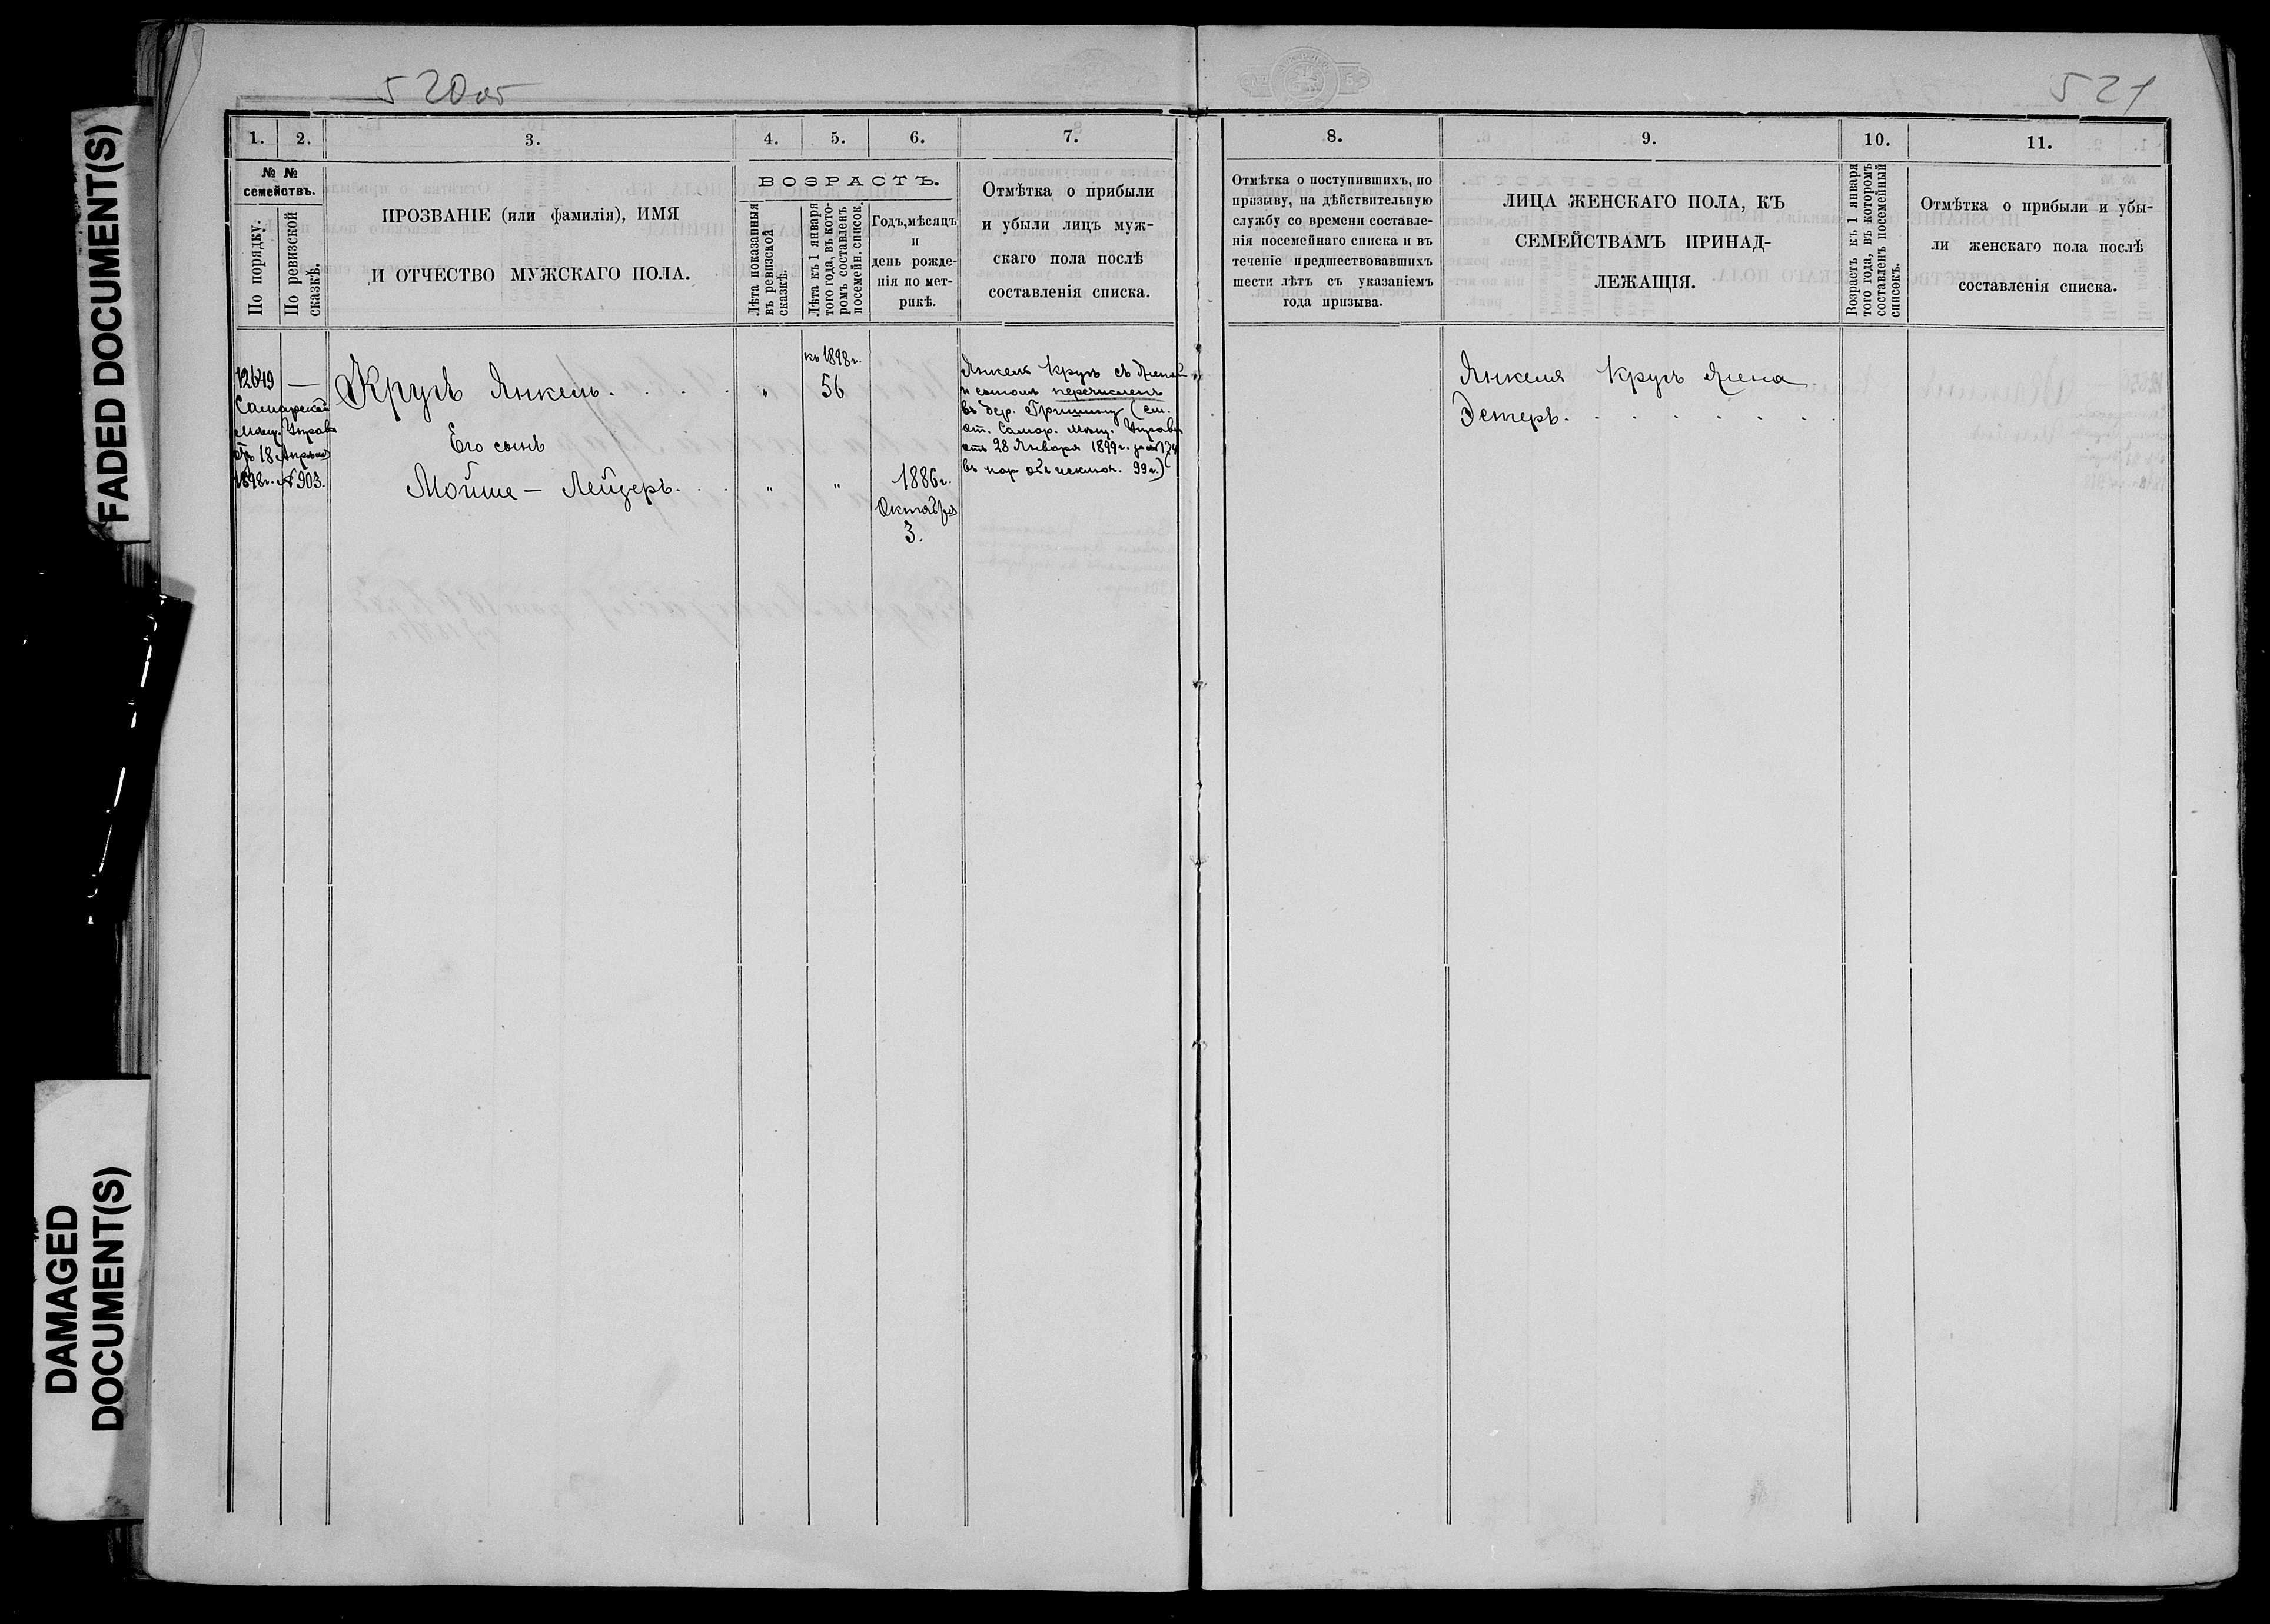 FADED DOCUMENT(S)
DAMAGED
DOCUMENT(S)
520об
521
1. 2. 3. 4. 5. 6. 7.
№ №
семействъ.
По порядку.
По ревизской
сказкѣ.
ПРОЗВАНІЕ (или фамилія), ИМЯ
И ОТЧЕСТВО МУЖСКАГО ПОЛА.
ВОЗРАСТЪ.
Лѣта показанныя
въ ревизской
сказкѣ.
Лѣта къ 1 января
того года, въ кото-
ромъ составленъ
посемейн. список.
Годъ, мѣсяцъ
и
день рожде-
нія по мет-
рикѣ.
Отмѣтка о прибыли
и убыли лицъ муж-
скаго пола послѣ
составленія списка.
12649 —
Самарской
Мѣщ. Управы
18 Апрѣля
1898г. № 903.
Кругъ Янкель. . . .
Его сынъ
Мойше - Лейзеръ. . .
" "
"
къ 1898г.
56
1886г.
Октября
3.
Янкель Кругъ съ женой
и сыномъ перечисленъ
въ дер. Гришину (см.
от. Самар. Мѣщ. Управы
отъ 28 Января 1899г. за №
въ нар объ исключ. 99г.)
8. 9. 10. 11.
Отмѣтка о поступившихъ, по
призыву, на дѣйствительную
службу со времени составле-
нія посемейнаго списка и въ
теченіе предшествовавшихъ
шести лѣтъ съ указаніемъ
года призыва.
ЛИЦА ЖЕНСКАГО ПОЛА, КЪ
СЕМЕЙСТВАМЪ ПРИНАД-
ЛЕЖАЩІЯ.
Возрастъ къ 1 января
того года, въ которомъ
составленъ посемейный
списокъ.
Отмѣтка о прибыли и убы-
ли женскаго пола послѣ
составленія списка.
Янкеля Кругъ жена
Эстеръ. . . . . . .